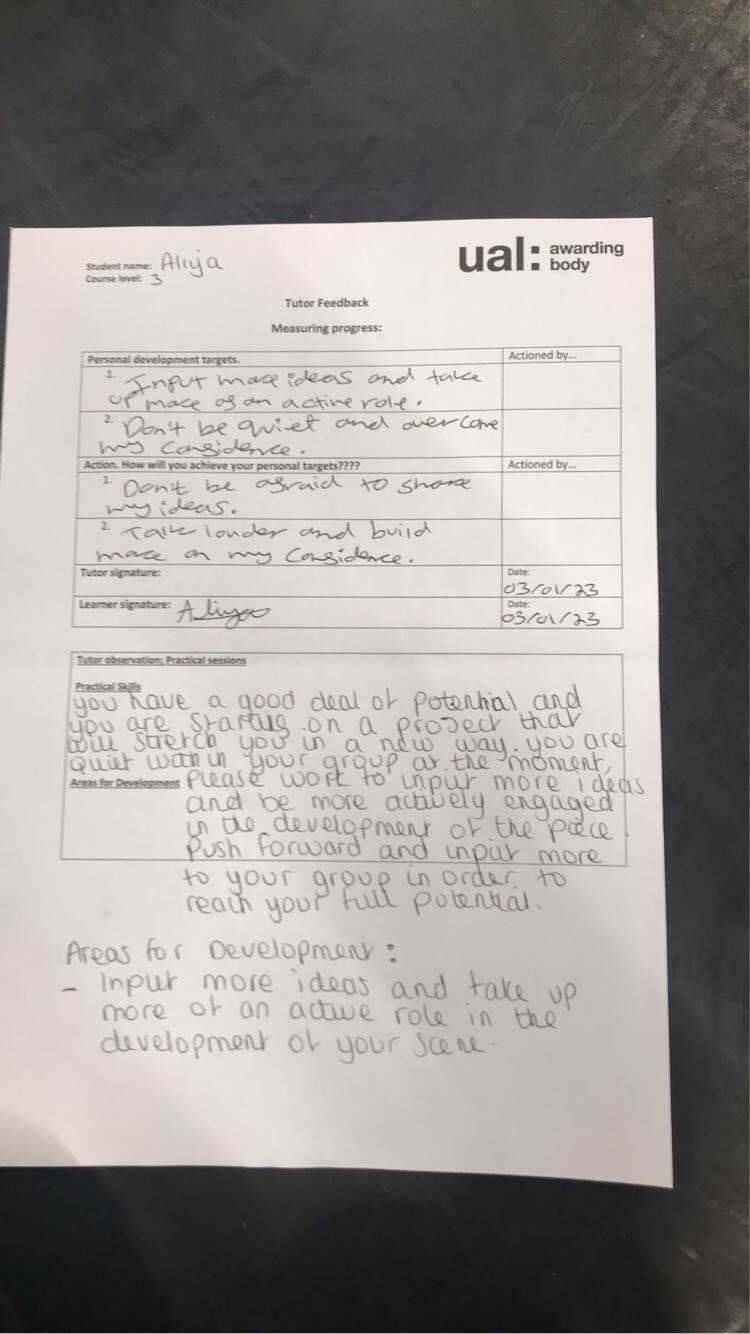 Student name: Aliya
Course level: 3
ual: awarding
body
Tutor Feedback
Measuring progress:
Personal development targets.
Actioned by...
1. Input more ideas and take
up more of an active role.
2. Don't be quiet and overcome
my confidence.
Action. How will you achieve your personal targets????
Actioned by...
1. Don't be afraid to share
my ideas.
2. Talk louder and build
more on my confidence.
Tutor signature:
Date:
03/01/23
Learner signature: Aliyaa
Date:
03/01/23
Tutor observation: Practical sessions
Practical Skills
you have a good deal of potential and
you are starting on a project that
will stretch you in a new way. you are
quiet within your group at the moment,
Areas for Development please work to input more ideas
and be more actively engaged
in the development of the piece.
Push forward and input more
to your group in order to
reach your full potential.
Areas for Development:
- Input more ideas and take up
more of an active role in the
development of your scene.